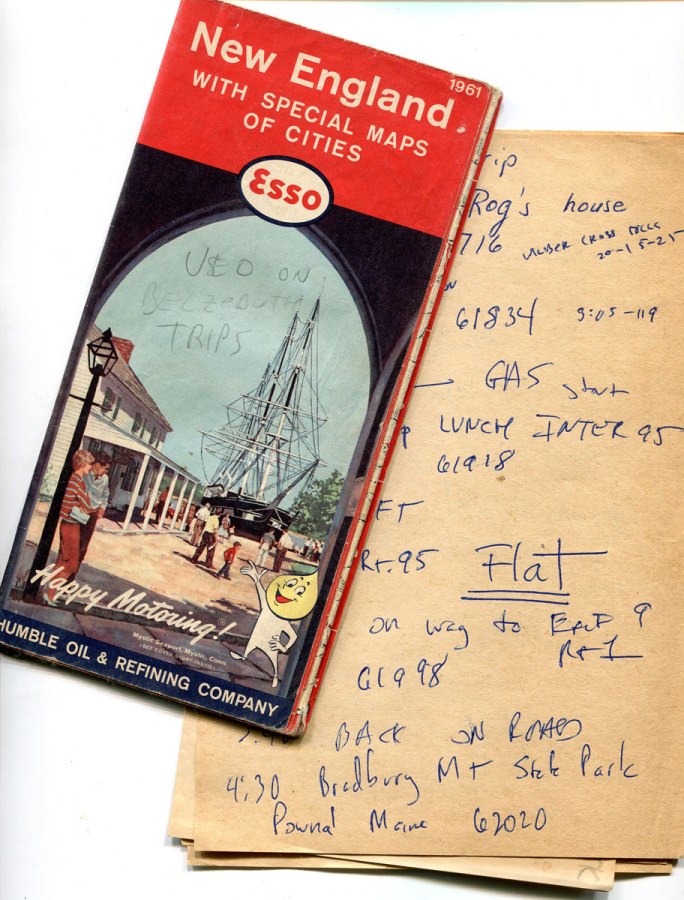 New England
1961
WITH SPECIAL MAPS
OF CITIES
Esso
USED ON
BELZEBUTH
TRIPS
Happy Motoring!
Mystic Seaport, Mystic, Conn.
(SEE COVER STORY INSIDE)
HUMBLE OIL & REFINING COMPANY
rip
Rog's house
716
CROSS
20-15-25
61834 3:05-119
GAS start
LUNCH INTER 95
61918
FT
Rt. 95 Flat
on way to 9
Rt 1
61998
BACK ON ROAD
4:30 Bradbury Mt State Park
Pownal Maine 62020